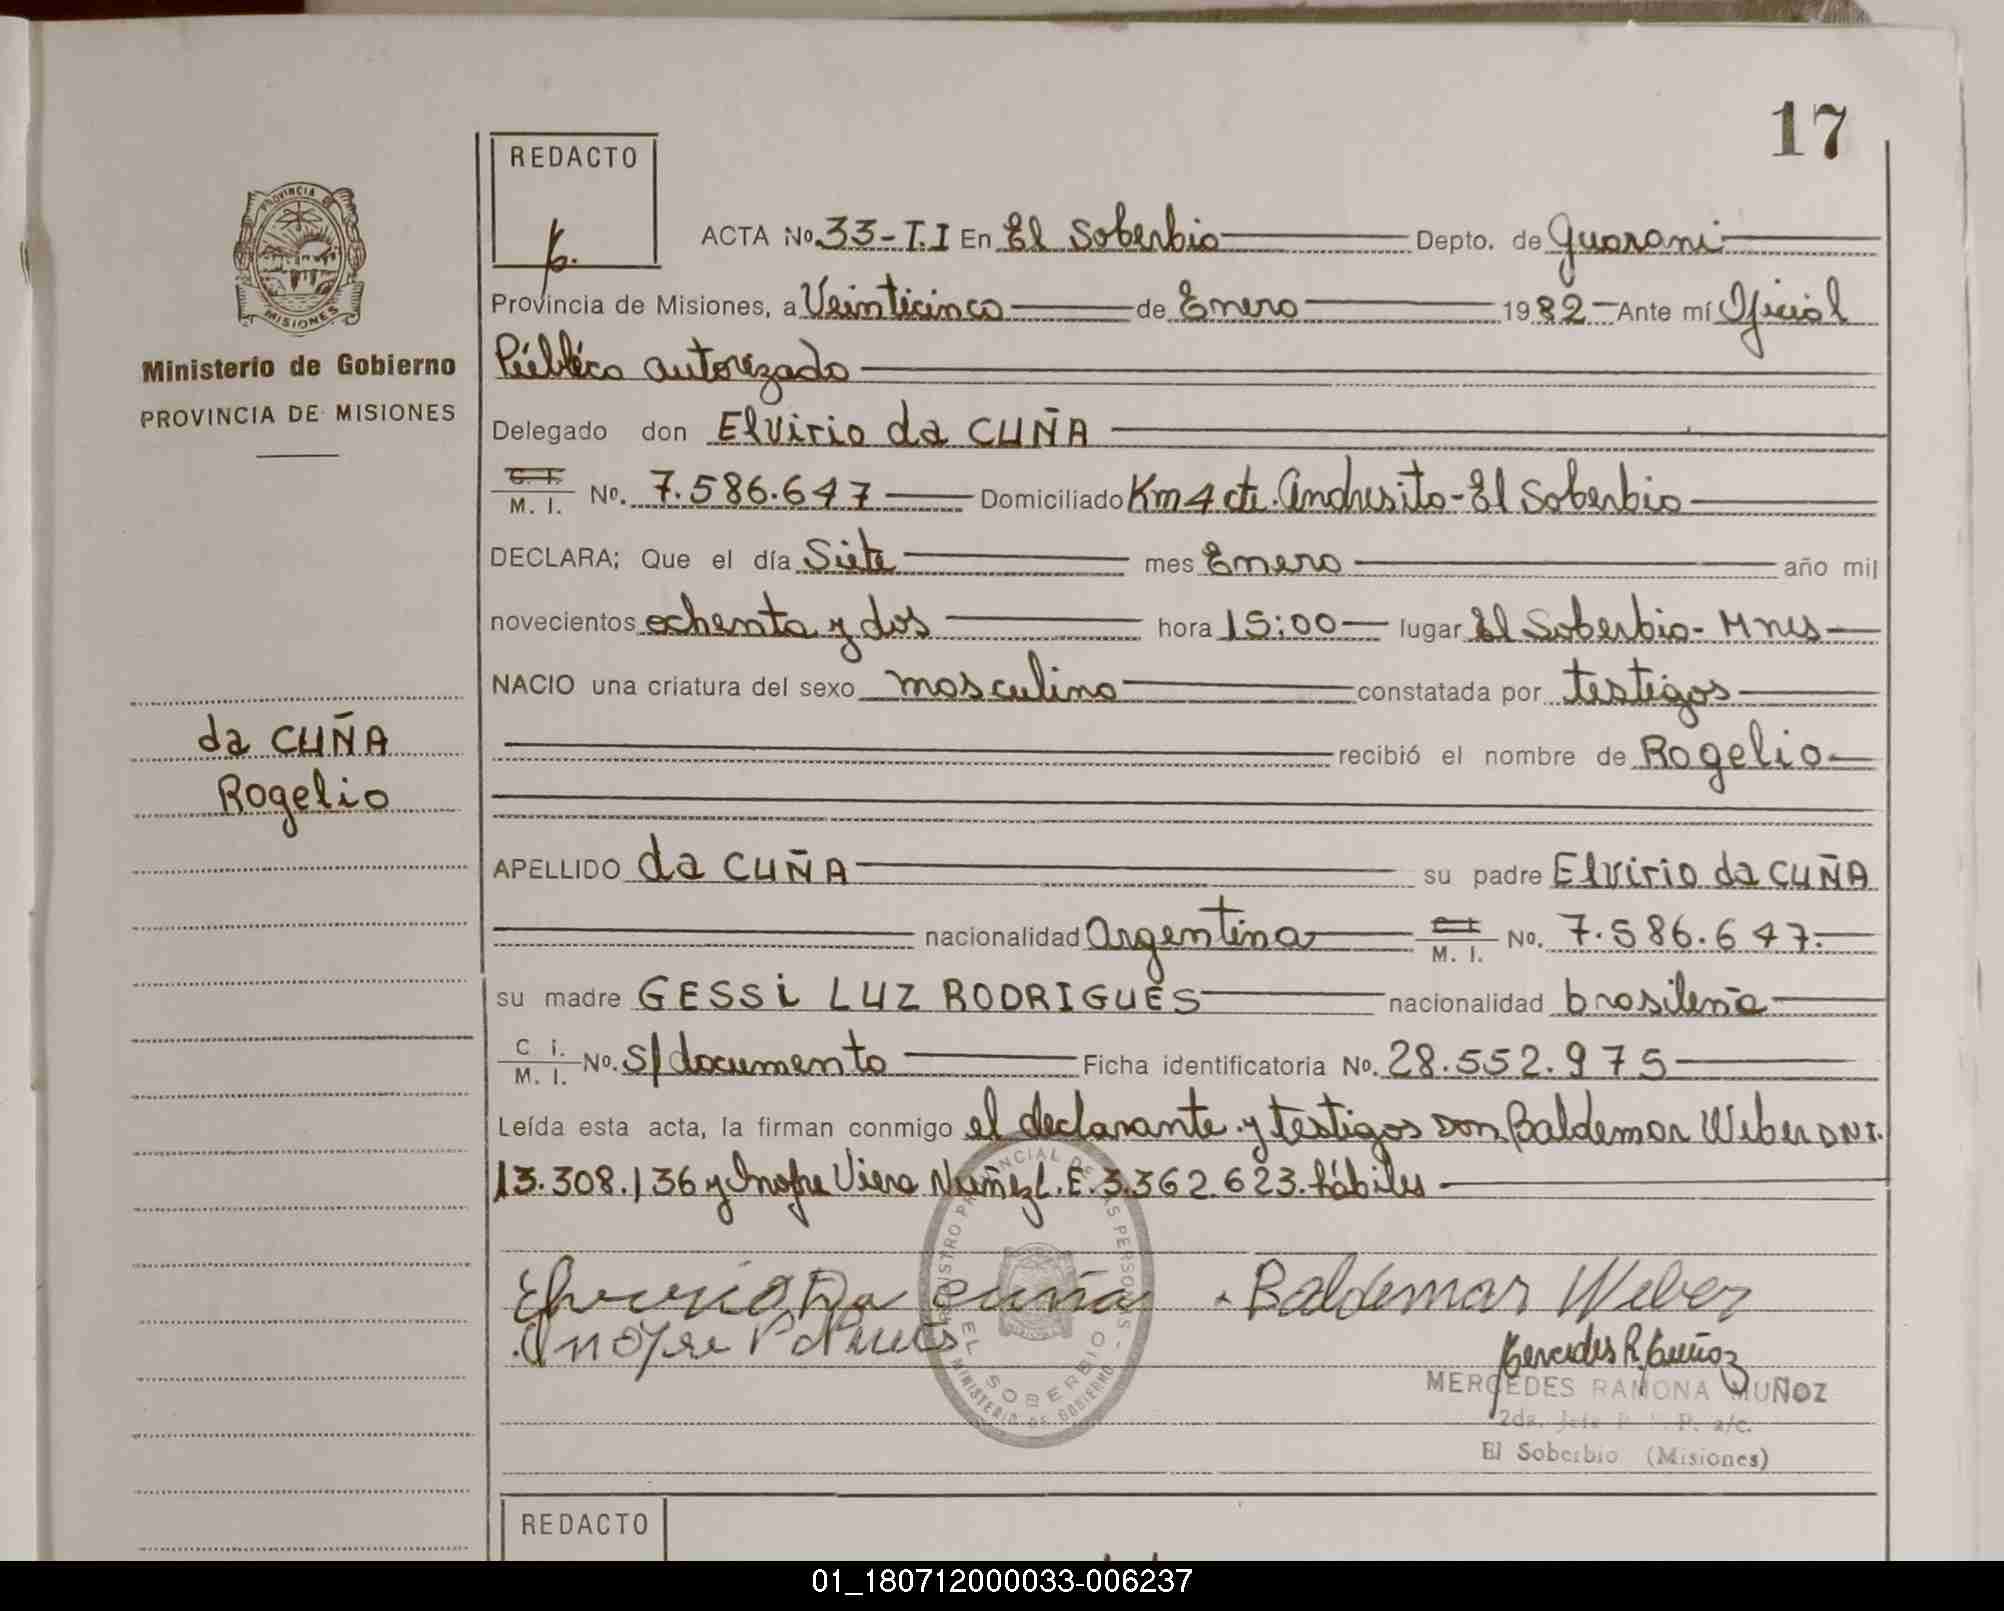 17
REDACTO
PROVINCIA DE
MISIONES
Ministerio de Gobierno
PROVINCIA DE MISIONES
ACTA No. 33-T.I En El Soberbio Depto. de Guarani
Provincia de Misiones, a Veinticinco de Enero 1982 Ante mí Oficial
Público autorizado
Delegado don Elvirio da CUÑA
C. I. M. I. No. 7.586.647 Domiciliado Km 4 cte. Andresito-El Soberbio
DECLARA; Que el día Siete mes Enero año mil
novecientos ochenta y dos hora 15:00 lugar El Soberbio-Mnes
NACIO una criatura del sexo masculino constatada por testigos
recibió el nombre de Rogelio
da CUÑA
Rogelio
APELLIDO da CUÑA su padre Elvirio da CUÑA
nacionalidad Argentina C. I. M. I. No. 7.586.647.
su madre GESSi LUZ RODRIGUES nacionalidad brasileña
C i. M. I. No. S/documento Ficha identificatoria No. 28.552.975
Leída esta acta, la firman conmigo el declarante y testigos don Baldemar Weber DNI.
13.308.136 y Inofre Viera Nuñez L.E. 3.362.623. hábiles
REGISTRO PROVINCIAL DE LAS PERSONAS
EL SOBERBIO
MINISTERIO DE GOBIERNO
Da cuña Baldemar Weber
Onofre
Mercedes R. Muñoz
MERCEDES RAMONA MUÑOZ
2da. Jefe P. a/c.
El Soberbio (Misiones)
REDACTO
01_180712000033-006237